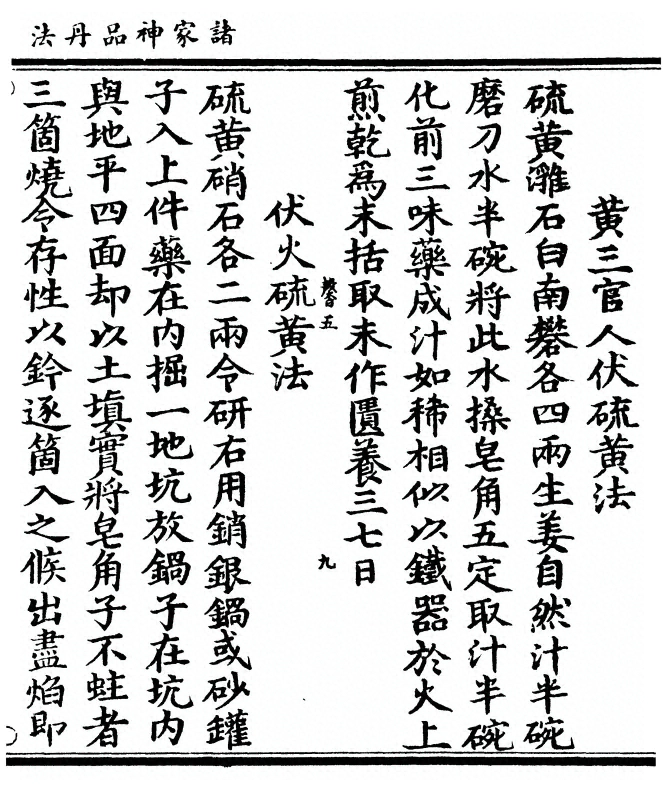 諸家神品丹法
黄三官人伏硫黄法
硫黄濰石白南礬各四兩生姜自然汁半碗
磨刀水半碗將此水搡皂角五定取汁半碗
化前三味藥成汁如稀相似以鐵器於火上
煎乾為末括取末作匱養三七日
九
五
伏火硫黄法
硫黄硝石各二兩令研右用銷銀鍋或砂罐
子入上件藥在内掘一地坑放鍋子在坑内
與地平四面却以土填實將皂角子不蛀者
三箇燒令存性以鈐逐箇入之候出盡焰即